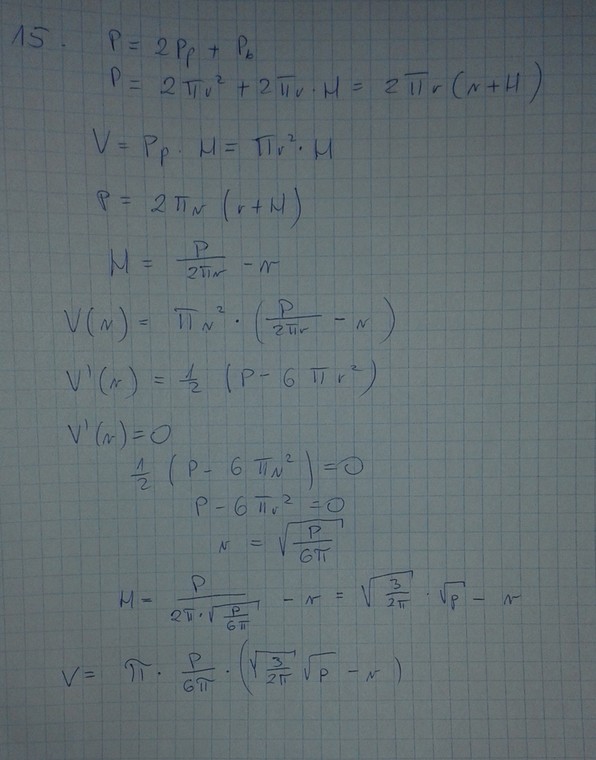 15. P = 2Pp + Pb
P = 2πr² + 2πr · H = 2πr (r+H)
V = Pp · H = πr² · H
P = 2πr (r+H)
H = P/2πr - r
V(r) = πr² · (P/2πr - r)
V'(r) = 1/2 (P - 6πr²)
V'(r) = 0
1/2 (P - 6πr²) = 0
P - 6πr² = 0
r = √(P/6π)
H = P/(2π·√(P/6π)) - r = √(3/2π) · √P - r
V = π · P/6π · (√(3/2π) √P - r)